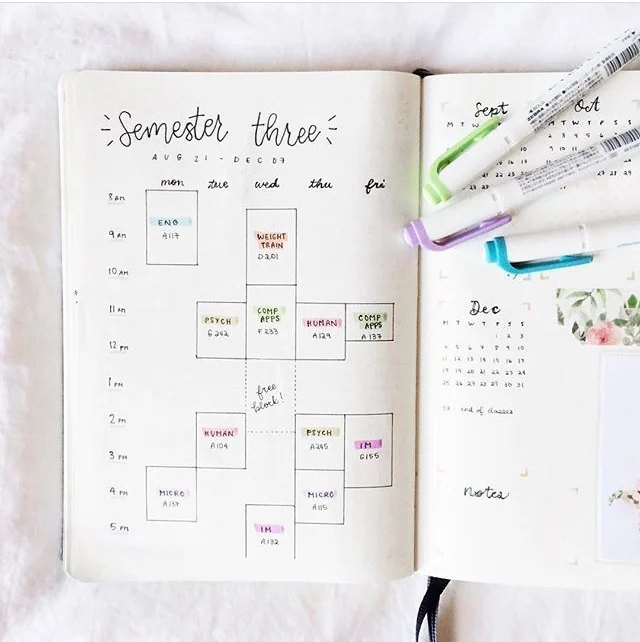 Semester three
AUG 21 - DEC 07
mon tue wed thu fri
8 AM
ENG
A117
9 AM
WEIGHT
TRAIN
D201
10 AM
11 AM
PSYCH
G242
COMP
APPS
F233
HUMAN
A129
COMP
APPS
A137
12 PM
1 PM
free
block!
2 PM
HUMAN
A104
PSYCH
A245
IM
G155
3 PM
4 PM
MICRO
A137
MICRO
A115
5 PM
IM
A132
Sept
Oct
M T W
Dec
M T W T F S S
1 2 3
4 5 6 7 8 9 10
11 12 13 14 15 16 17
18 19 20 21 22 23 24
25 26 27 28 29 30 31
07 - end of classes
Notes